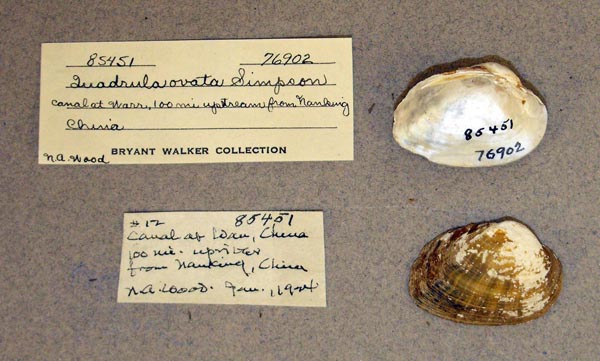 85451 76902
Quadrula ovata Simpson
Canal at Warr, 100 mi upstream from Nanking
China
N.A. Wood BRYANT WALKER COLLECTION
85451
76902
#12 85451
Canal at, China
100 mi. upriver
from Nanking, China
N.A. Wood. Jan., 1924